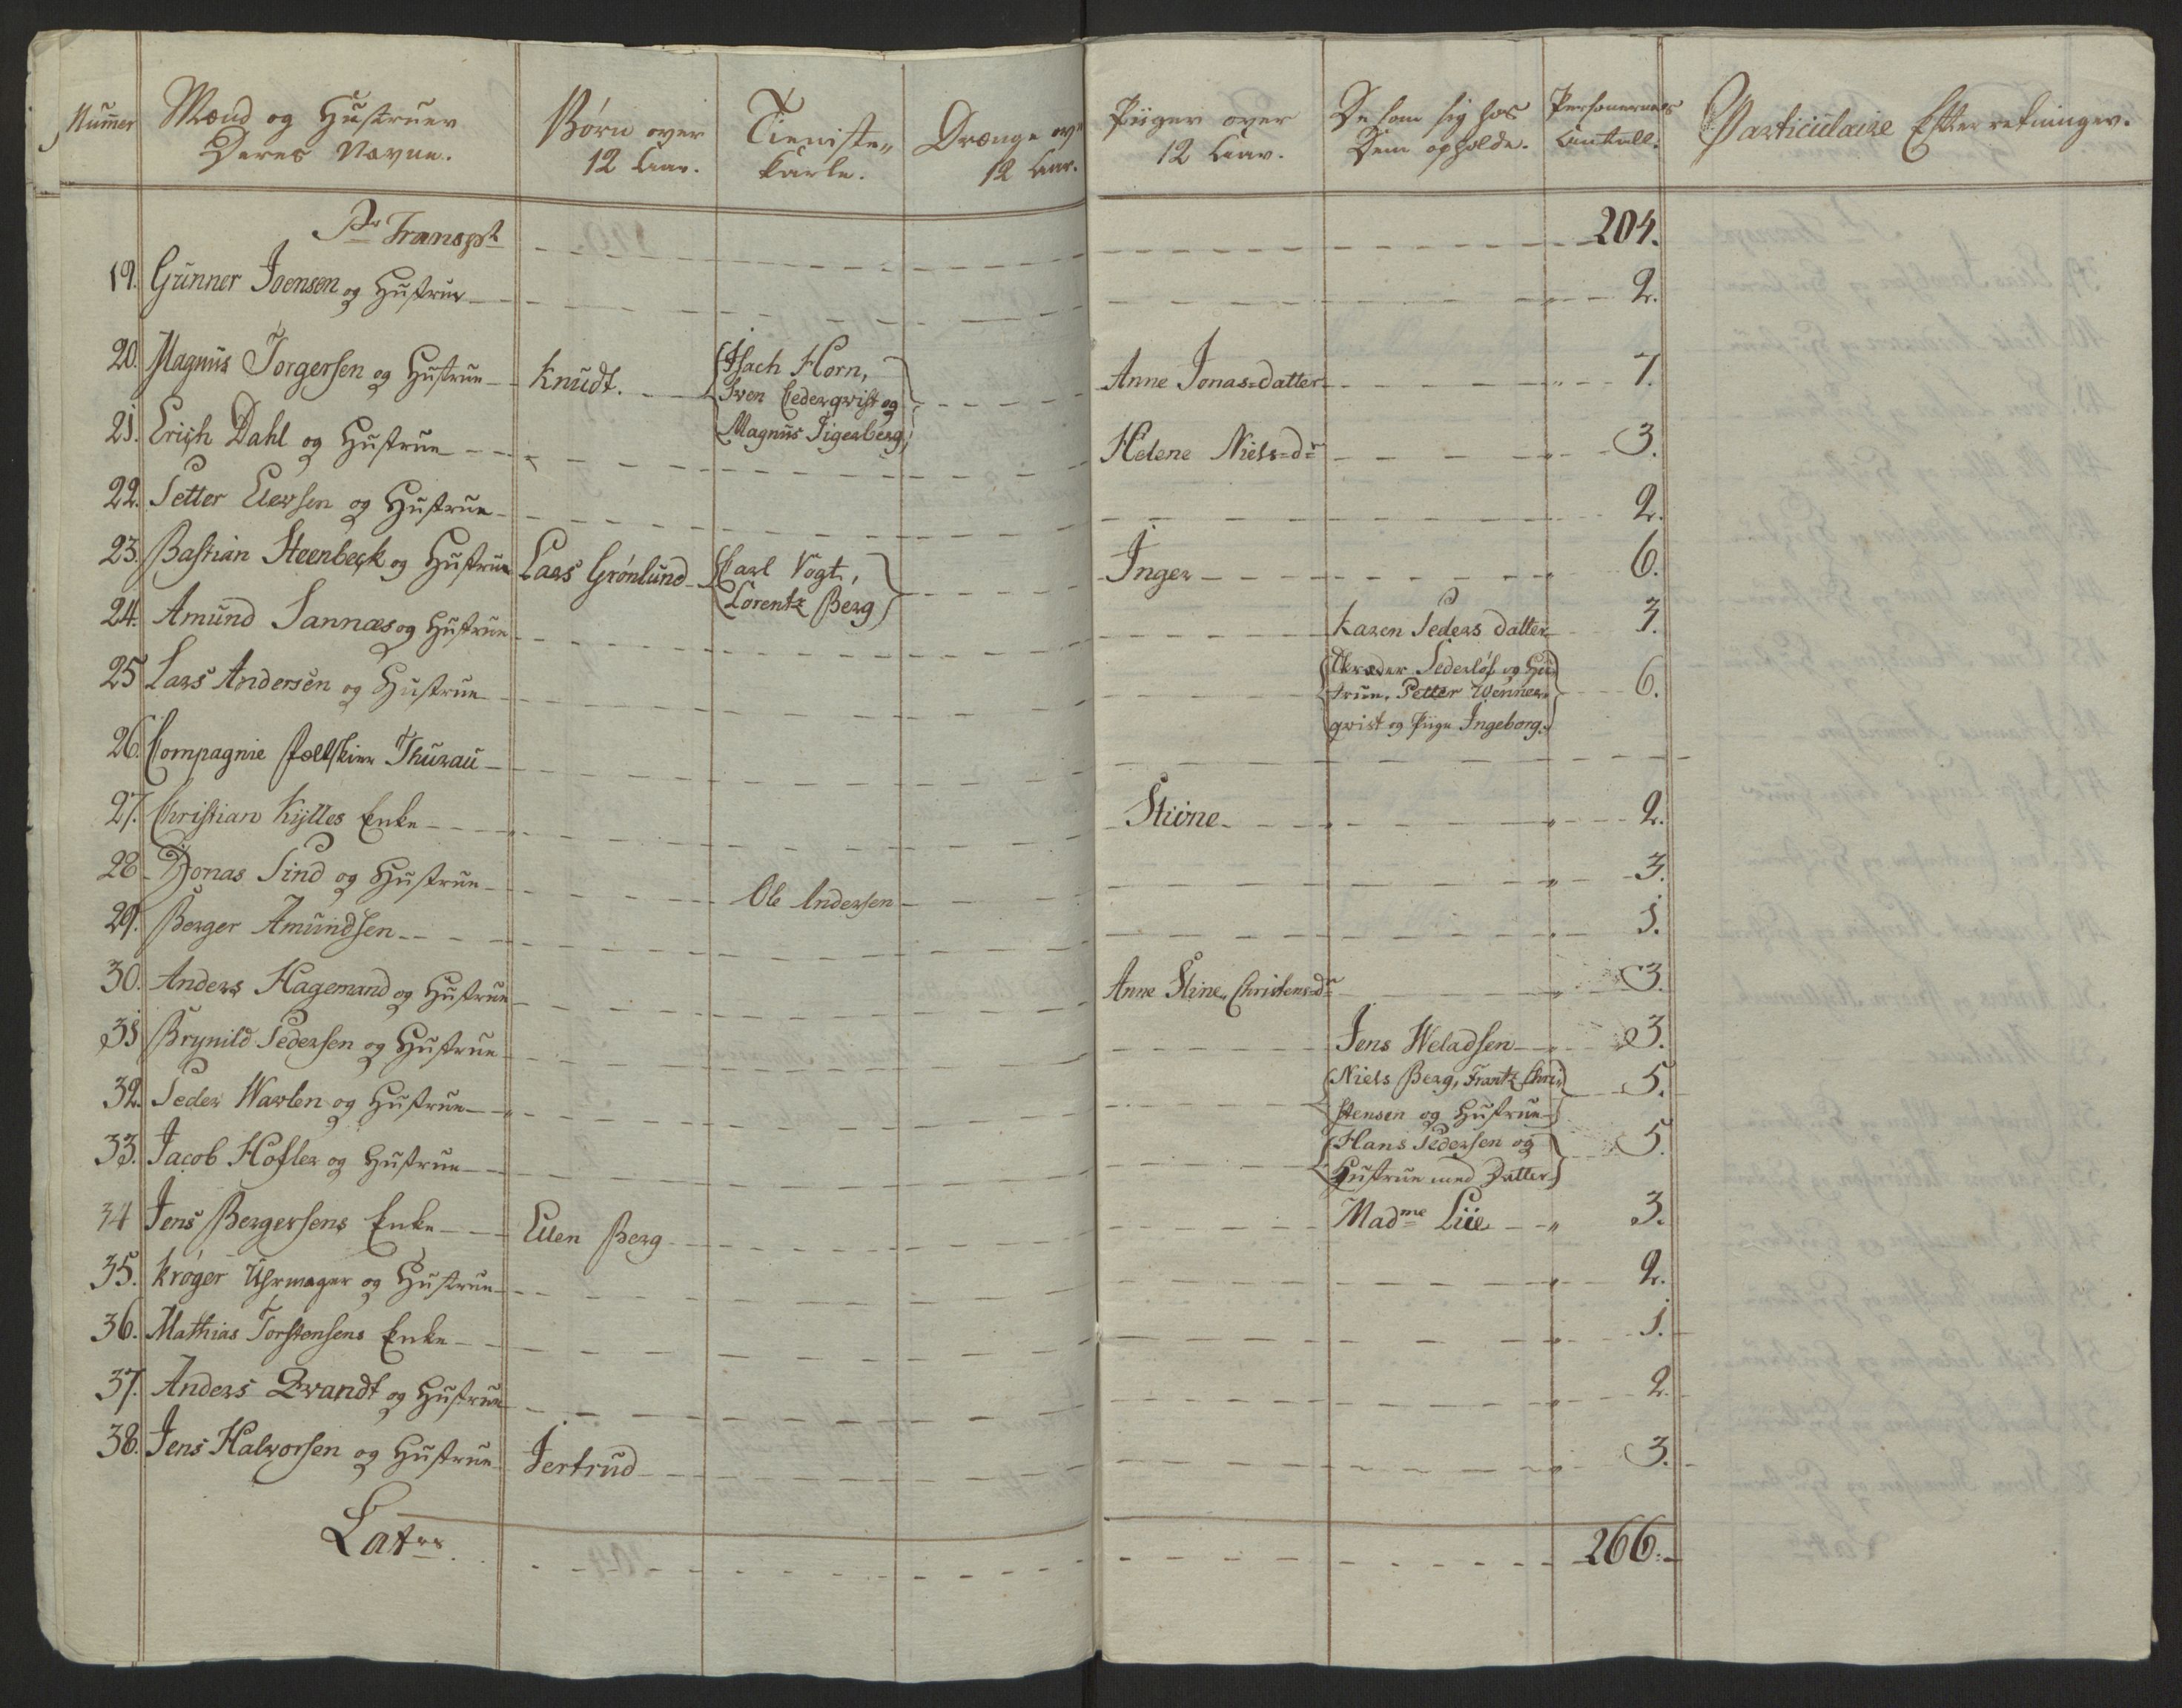 Numer Mænd og Hustruer Deres Navne. Børn over 12 Aar. Tieniste Karle. Drænge ov 12 Aar. Piiger over 12 Aar. De som sig hos Dem opholde. Personernes Antall. Particulaire Efterretninger.
Pr Transpt 204.
19. Gunner Joensen og Hustrue 2.
20. Magnus Torgersen og Hustrue Knudt. Isach Horn, Sven Cederqvist og Magnus Tigerberg, Anne Jonas=datter 7.
21. Erich Dahl og Hustrue Helene Niels=dr 3.
22. Petter Elersen og Hustrue 2.
23. Bastian Steenbeck og Hustrue Lars Grønlund Carl Vogt, Lorentz Berg Inger 6.
24. Amund Sannæs og Hustrue Karen Peders datter 3.
25 Lars Andersen og Hustrue Skræder Sederløf og Hustrue, Petter Wennerqvist og Piige Ingeborg. 6.
26. Compagnie Feldtskier Thurau
27. Christian Kÿlles Enke Stiøne 2.
28 Jonas Lind og Hustrue Ole Andersen 3.
29. Berger Amundsen 1.
30. Anders Hagemand og Hustrue Anne Stine Christens=dr 3.
31 Brynild Pedersen og Hustrue Jens Weladsen 3.
32. Peder Warlen og Hustrue Niels Berg, Frantz Christensen og Hustrue 5.
33. Jacob Hofler og Hustrue Hans Pedersen og Hustrue med Datter 5.
34 Jens Bergersens Enke Ellen Berg Madme Lüe 3.
35. Krøger Uhrmager og Hustrue 2.
36. Mathias Torstensens Enke 1.
37. Anders Qvandt og Hustrue 2.
38. Jens Halvorsen og Hustrue Jertrud 3.
Latus 266.